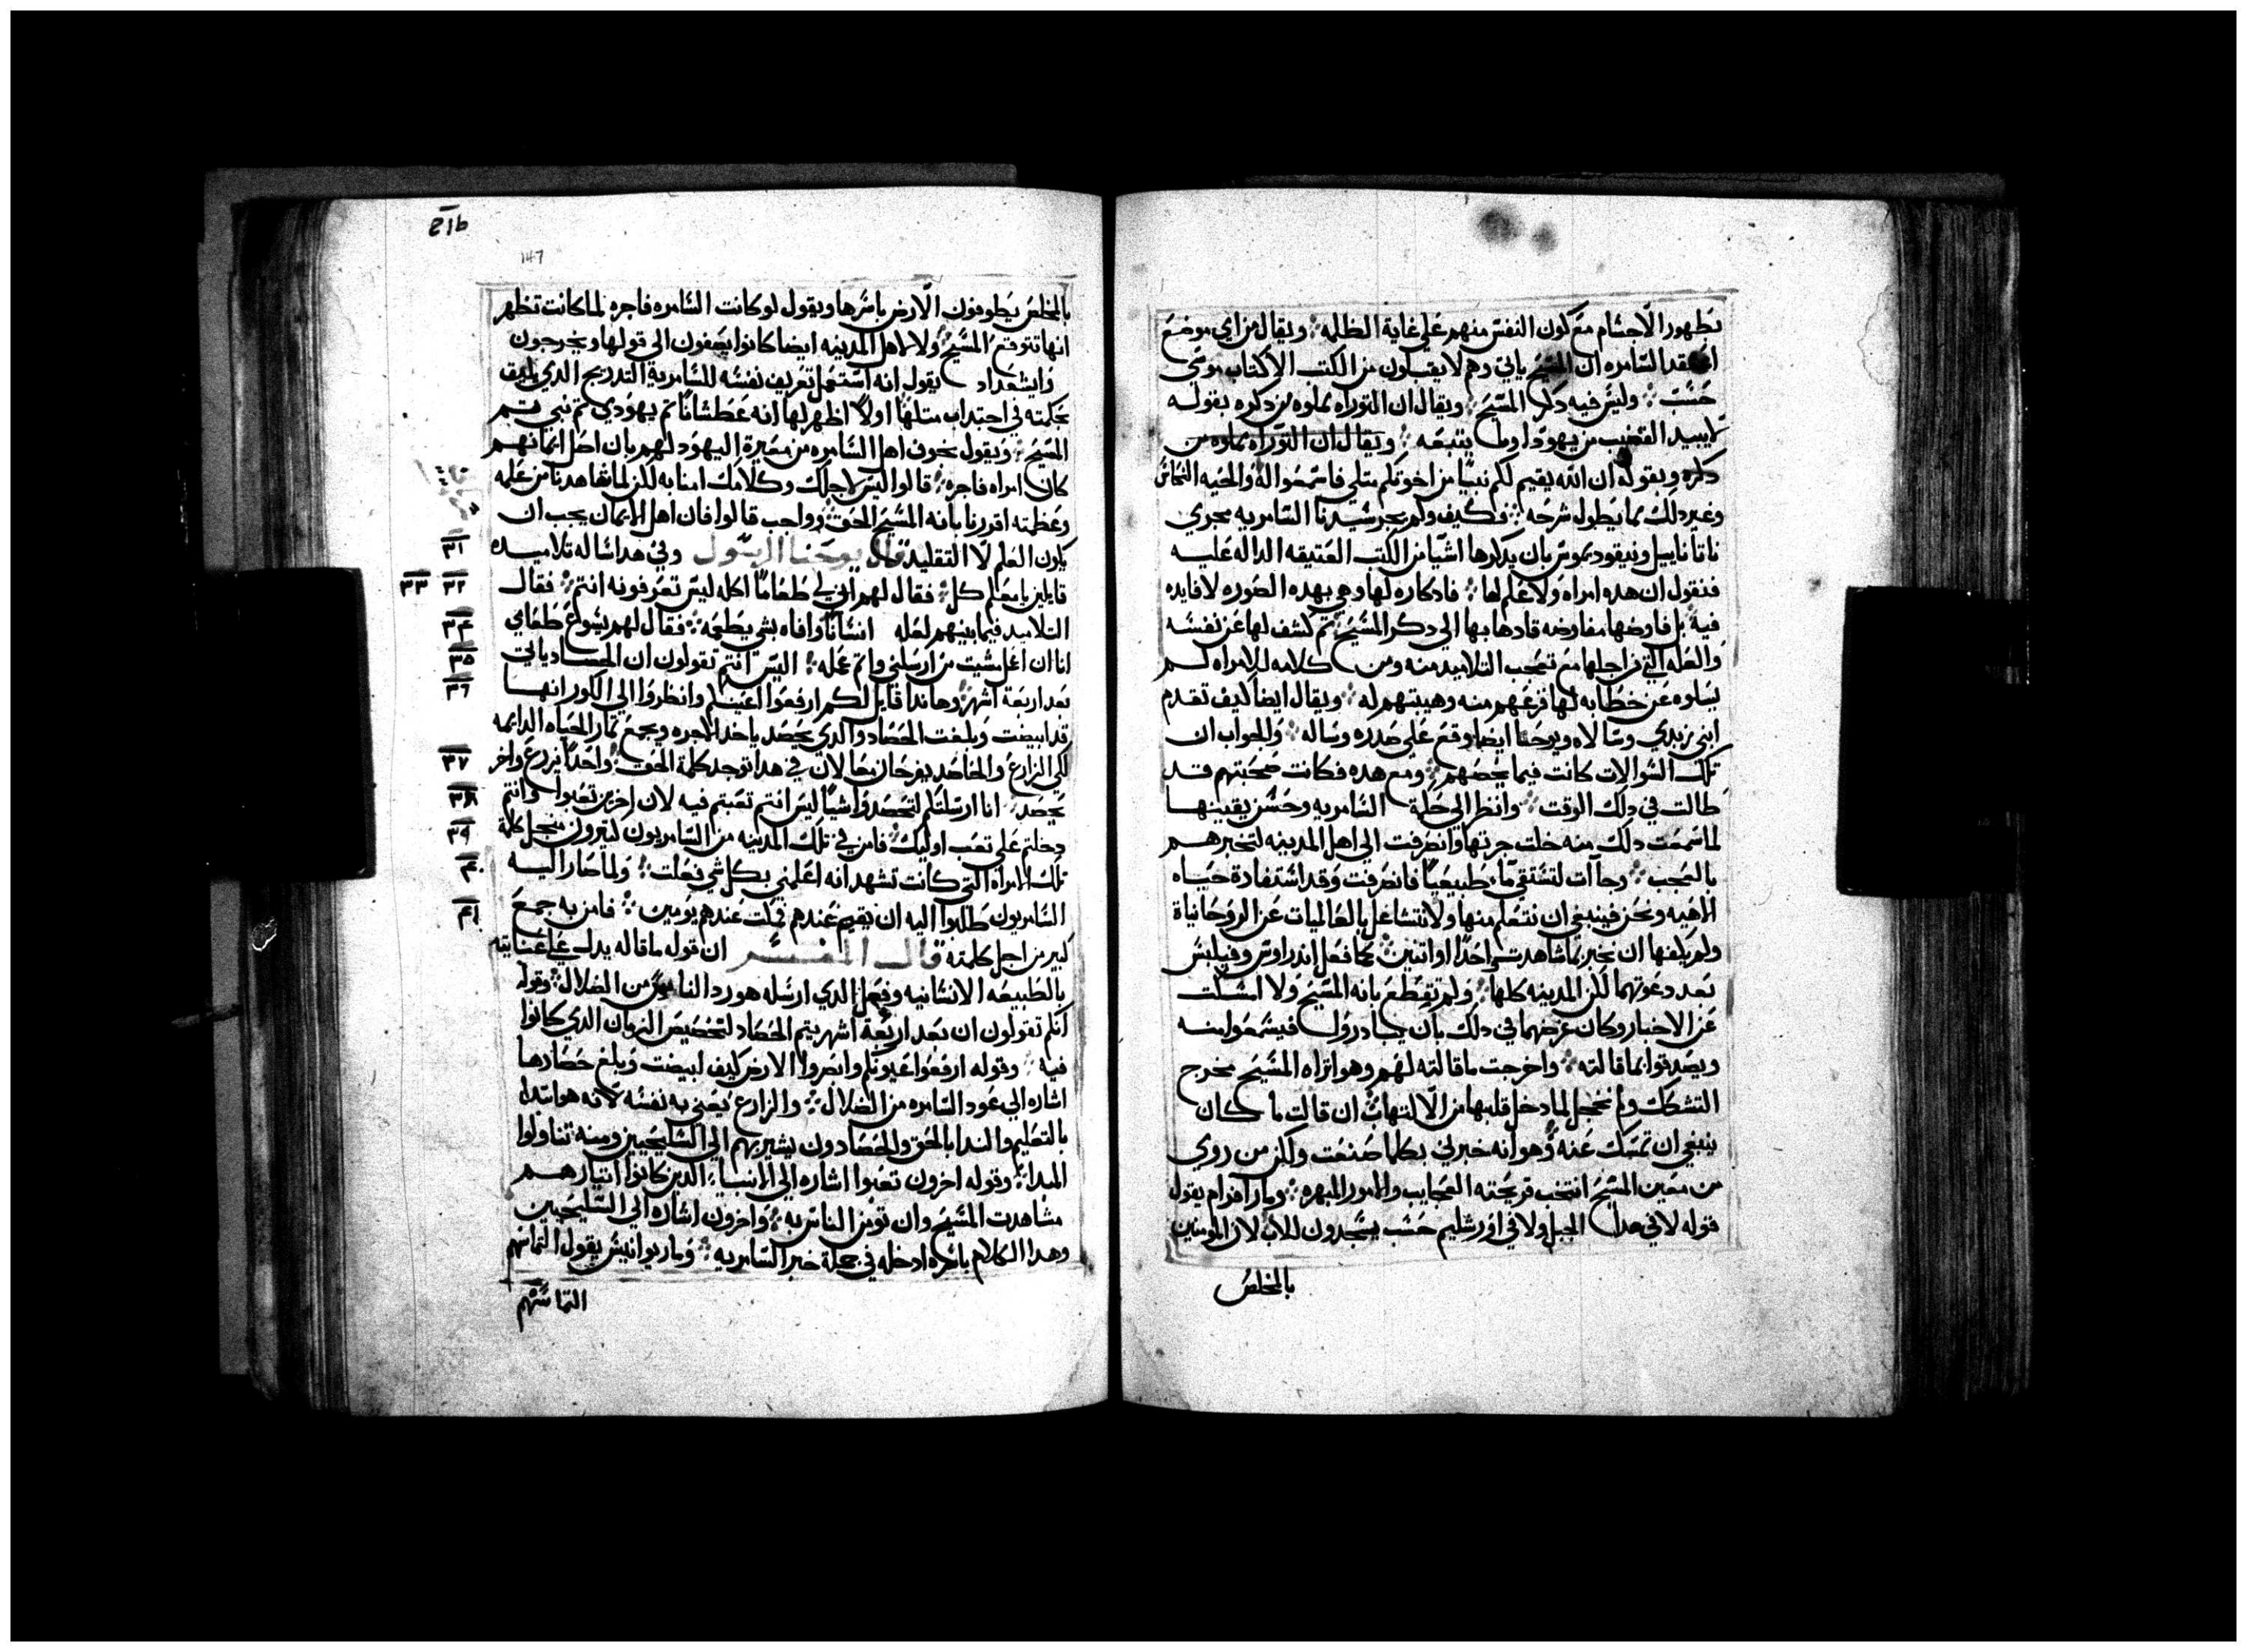 بظهور الاجسام مع كون النفس منهم على غاية الظلمه ويقال من اي موضع
اعتقد السامره ان المسيح ياتي وهم لا يقبلون من الكتب الا كتاب موسى
حسب وليس فيه دكر المسيح ويقال ان التوراه مملوه من دكره بقوله
لا يبيد القضيب من يهودا وما يتبعه ويقال ان التوراه مملوه من
دكره وبقوله ان الله يقيم لكم نبيا من اخوتكم متلي فاسمعوا له والحيه النحاس
وغير دلك مما يطول شرحه فكيف ولم يجر سيدنا السامريه مجرى
ناتاناييل ونيقوديموس بان يدكرها اشيا من الكتب العتيقه الداله عليه
فنقول ان هده امراه ولا علم لها فادكاره لها وهي بهده الصوره لا فايده
فيه بل فاوضها مفاوضه قادها بها الى دكر المسيح تم كشف لها عن نفسه
والعله التي من اجلها مع تعجب التلاميد منه ومن كلامه للامراه لم
يسلوه عن خطابه لها فزعهم منه وهيبتهم له ويقال ايضا كيف تقدم
ابني زبدي وسالاه ويوحنا ايضا وقع على صدره وساله والجواب ان
تلك السوالات كانت فيما يخصهم ومع هده فكانت صحبتهم قد
طالت في دلك الوقت وانظر الى حكمة السامريه وحسن يقينها
لما سمعت دلك منه خلت جرتها وانصرفت الى اهل المدينه لتخبرهم
بالعجب وجاات لتستقي ما طبيعيا فانصرفت وقد استفادة حياه
الاهيه ونحن فينبغي ان نتعلم منها ولا نتشاغل بالعالميات عن الروحانياة
ولم يكفها ان تخبر بما شاهدت واحدا او اتنين كما فعل اندراوس وفيلبس
بعد دعوتهما لكن المدينه كلها ولم تقطع بانه المسيح ولا امسكت
عن الاخبار وكان غرضهما في دلك بان يبادرون فيسمعوا منه
ويصدقوا بما قالته واخرجت ما قالته لهم وهو اتراه المسيح مخرج
التشكك ولم تخجل لما دخل قلبها من الالتهاب ان قالت ما كان
ينبغي ان تمسك عنه وهو انه خبرني بكلما صنعت ولكن من روي
من معين المسيح انتخب قريحته العجايب والامور المبهره ومار افرام يقول
قوله لا في هدا الجبل ولا في اورشليم حسب يسجدون للاب لان المومنين
بالمخلص
21b
147
بالمخلص يطوفون الارض باسرها ويقول لو كانت السامره فاجره لما كانت تظهر
انها تتوقع المسيح ولا اهل المدينه ايضا كانوا يصغون الى قولها ويخرجون
وايشعداد يقول انه استعمل تعريف نفسه للسامرية التدريج الدي يليق
بحكمته في اجتداب متلها اولا اظهر لها انه عطشانا تم يهودي تم نبي تم
المسيح ويقول نحوف اهل السامره من معيرة اليهود لهم بان اصل ايمانهم
كان امراه فاجره قالوا ليس لاجلك وكلامك امنا به لكن لما شاهدنا من علمه
وعظمته اقررنا بانه المسيح الحق وواجب قالوا فان اهل الايمان يجب ان
يكون العلم لا التقليد قال يوحنا الرسول وفي هدا ساله تلاميده
٣١
قايلين يا معلم كل فقال لهم ان لي طعاما اكله ليس تعرفونه انتم فقال
٣٢ ٣٣
التلاميد فيما بينهم لعله انسانا وافاه بشي يطعمه فقال لهم يسوع طعامي
٣٤
انا ان اعمل مشيت من ارسلني واتم عمله اليس انتم تقولون ان الحصاد ياتي
٣٥
بعد اربعة اشهر وهاندا قايل لكم ارفعوا اعينكم وانظروا الى الكور انها
٣٦
قد ابيضت وبلغت الحصاد والدي يحصد ياخد الاجره ويجمع تمار الحياه الدايمه
لكي الزارع والحاصد يفرحان معا لان في هدا توجد كلمة الحق واحدا يزرع واخر
٣٧
يحصد انا ارسلتكم لتحصدوا شيا ليس انتم تعبتم فيه لان اخرين تعبوا وانتم
٣٨
دخلتم على تعب اوليك فامن في تلك المدينه من السامريون كتيرون من اجل كلمة
٣٩
تلك الامراه التي كانت تشهد انه اعلمني بكل شي فعلت ولما صار اليه
٤٠
السامريون طلبوا اليه ان يقيم عندهم فمكت عندهم يومين فامن به جمع
٤١
كبير من اجل كلمته قال المفسر ان قوله ما قاله يدل على عنايته
بالطبيعه الانسانيه وفعل الدي ارسله هو رد الناس من الضلال وقوله
انكم تقولون ان بعد اربعة اشهر يتم الحصاد لتخصيص الزمان الدي كانوا
فيه وقوله ارفعوا عيونكم وانضروا الارض كيف ابيضت وبلغ حصادها
اشاره الى عود السامره من الضلال والزارع يعني به نفسه لانه هو ابتدا
بالتعليم والندا بالحق والحصادون يشير بهم الى السليحيين ومنه تناولوا
المبدا وقوله اخرون تعبوا اشاره الى الانبيا الدين كانوا ايتارهم
مشاهدت المسيح وان تومن الناس به واخرون اشاره الى السليحيين
وهدا الكلام باسره ادخله في جملة خبر السامريه ومار يوانيس يقول التماسهم
التماسهم